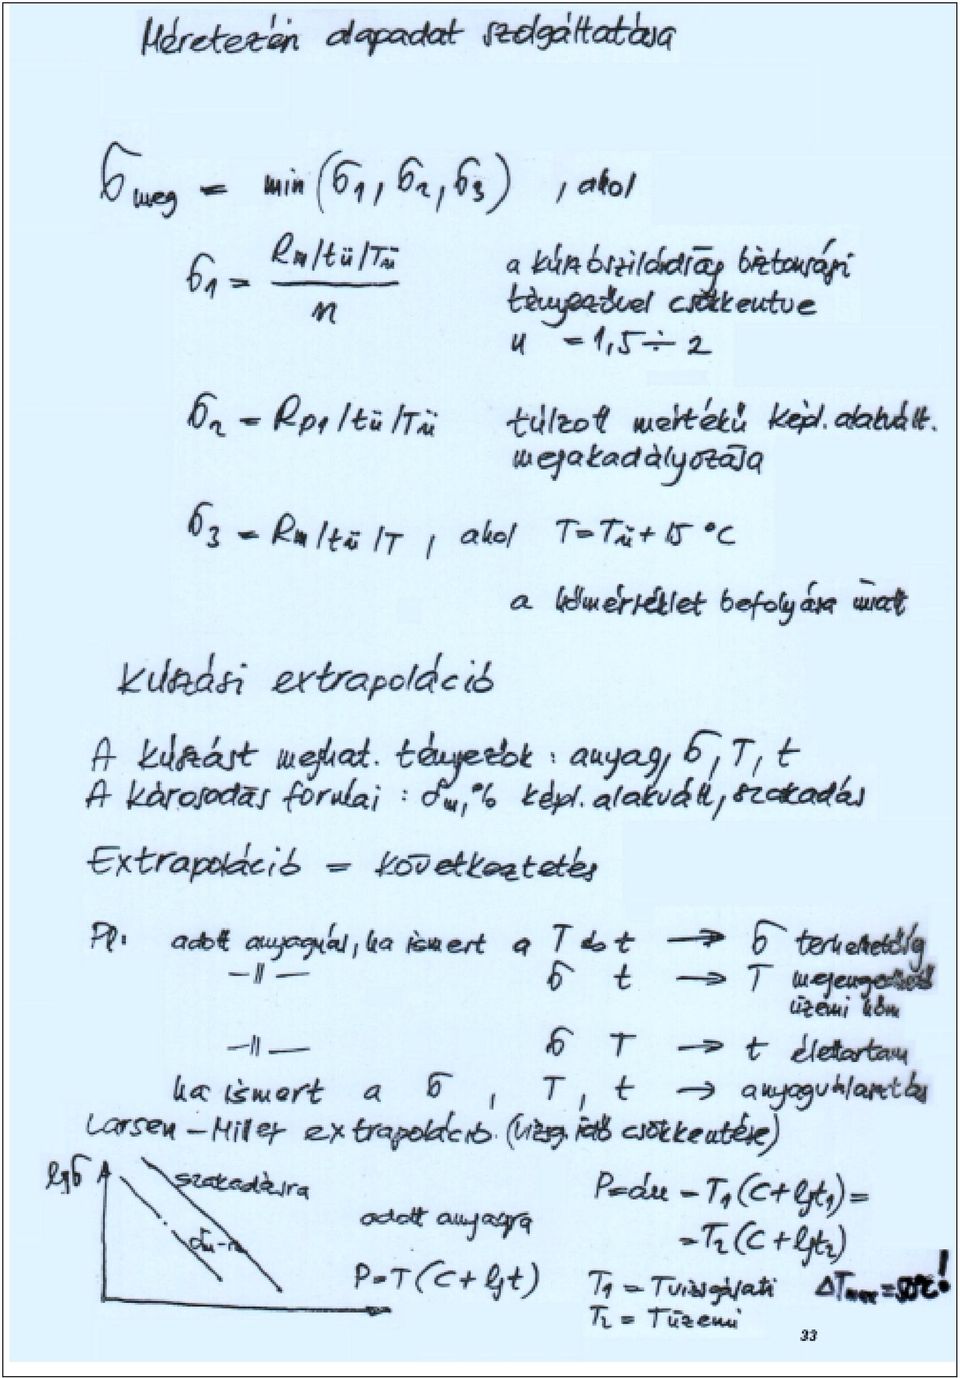 Méretezési alapadat szolgáltatása
σmeg = min (σ1, σ2, σ3) , ahol
σ1 = Rm/tü/Tü / n
a kúszószilárdság biztonsági
tényezővel csökkentve
n = 1,5 ÷ 2
σ2 = Rp1/tü/Tü túlzott mértékű képl. alakvált.
megakadályozása
σ3 = Rm/tü/T , ahol T = Tü + 15 °C
a hőmérséklet befolyása miatt
Kúszási extrapoláció
A kúszást meghat. tényezők : anyag, σ, T, t
A károsodás formái : %  képl. alakvált, szakadás
Extrapoláció = következtetés
Pl: adott anyagnál, ha ismert a T és t → σ terhelhetőség
-॥- σ t → T megengedhető
üzemi hőm
-॥- σ T → t élettartam
ha ismert a σ , T , t → anyagválasztás
Larsen - Miller extrapoláció (vizsg. idő csökkentése)
lgσ
szakadásra
adott anyagra
P = T (C + lgt)
P = áll = T1 (C + lgt1) =
= T2 (C + lgt2)
T1 = Tvizsgálati
ΔTmax = !
T2 = Tüzemi
33